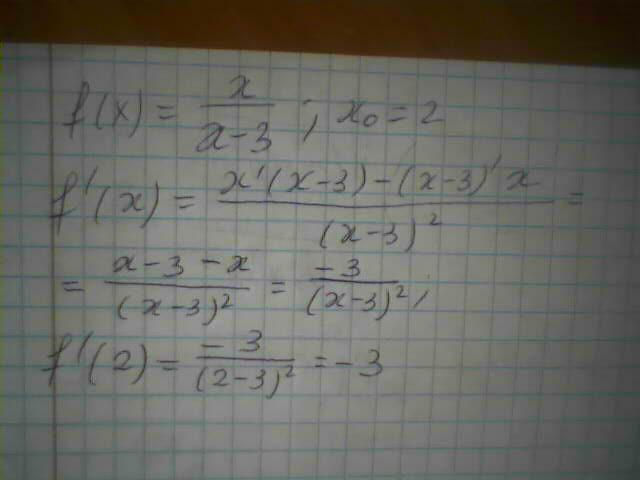 f(x) = x/(x-3) ; x₀ = 2
f'(x) = (x'(x-3) - (x-3)'x)/(x-3)² =
= (x-3-x)/(x-3)² = -3/(x-3)² ;
f'(2) = -3/(2-3)² = -3